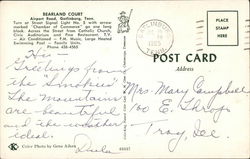 BEARLAND COURT
Airport Road, Gatlinburg, Tenn.
Turn at Street Signal Light No. 5 with arrow
marked "Chamber of Commerce" go one long
block. Across the Street from Catholic Church,
Civic Auditorium and Fine Restaurant. T.V.
- Air Conditioned - F.M. Music, Large Heated
Swimming Pool - Family Units.
Phone 436-4565
PLACE
STAMP
HERE
POST CARD
Address
Hi -
Greetings from
the "Smokies"
The mountains
are beautiful
and the weather
ideal.
Mrs. Mary Campbell
160 E.
Troy,
Color Photo by Gene Aiken